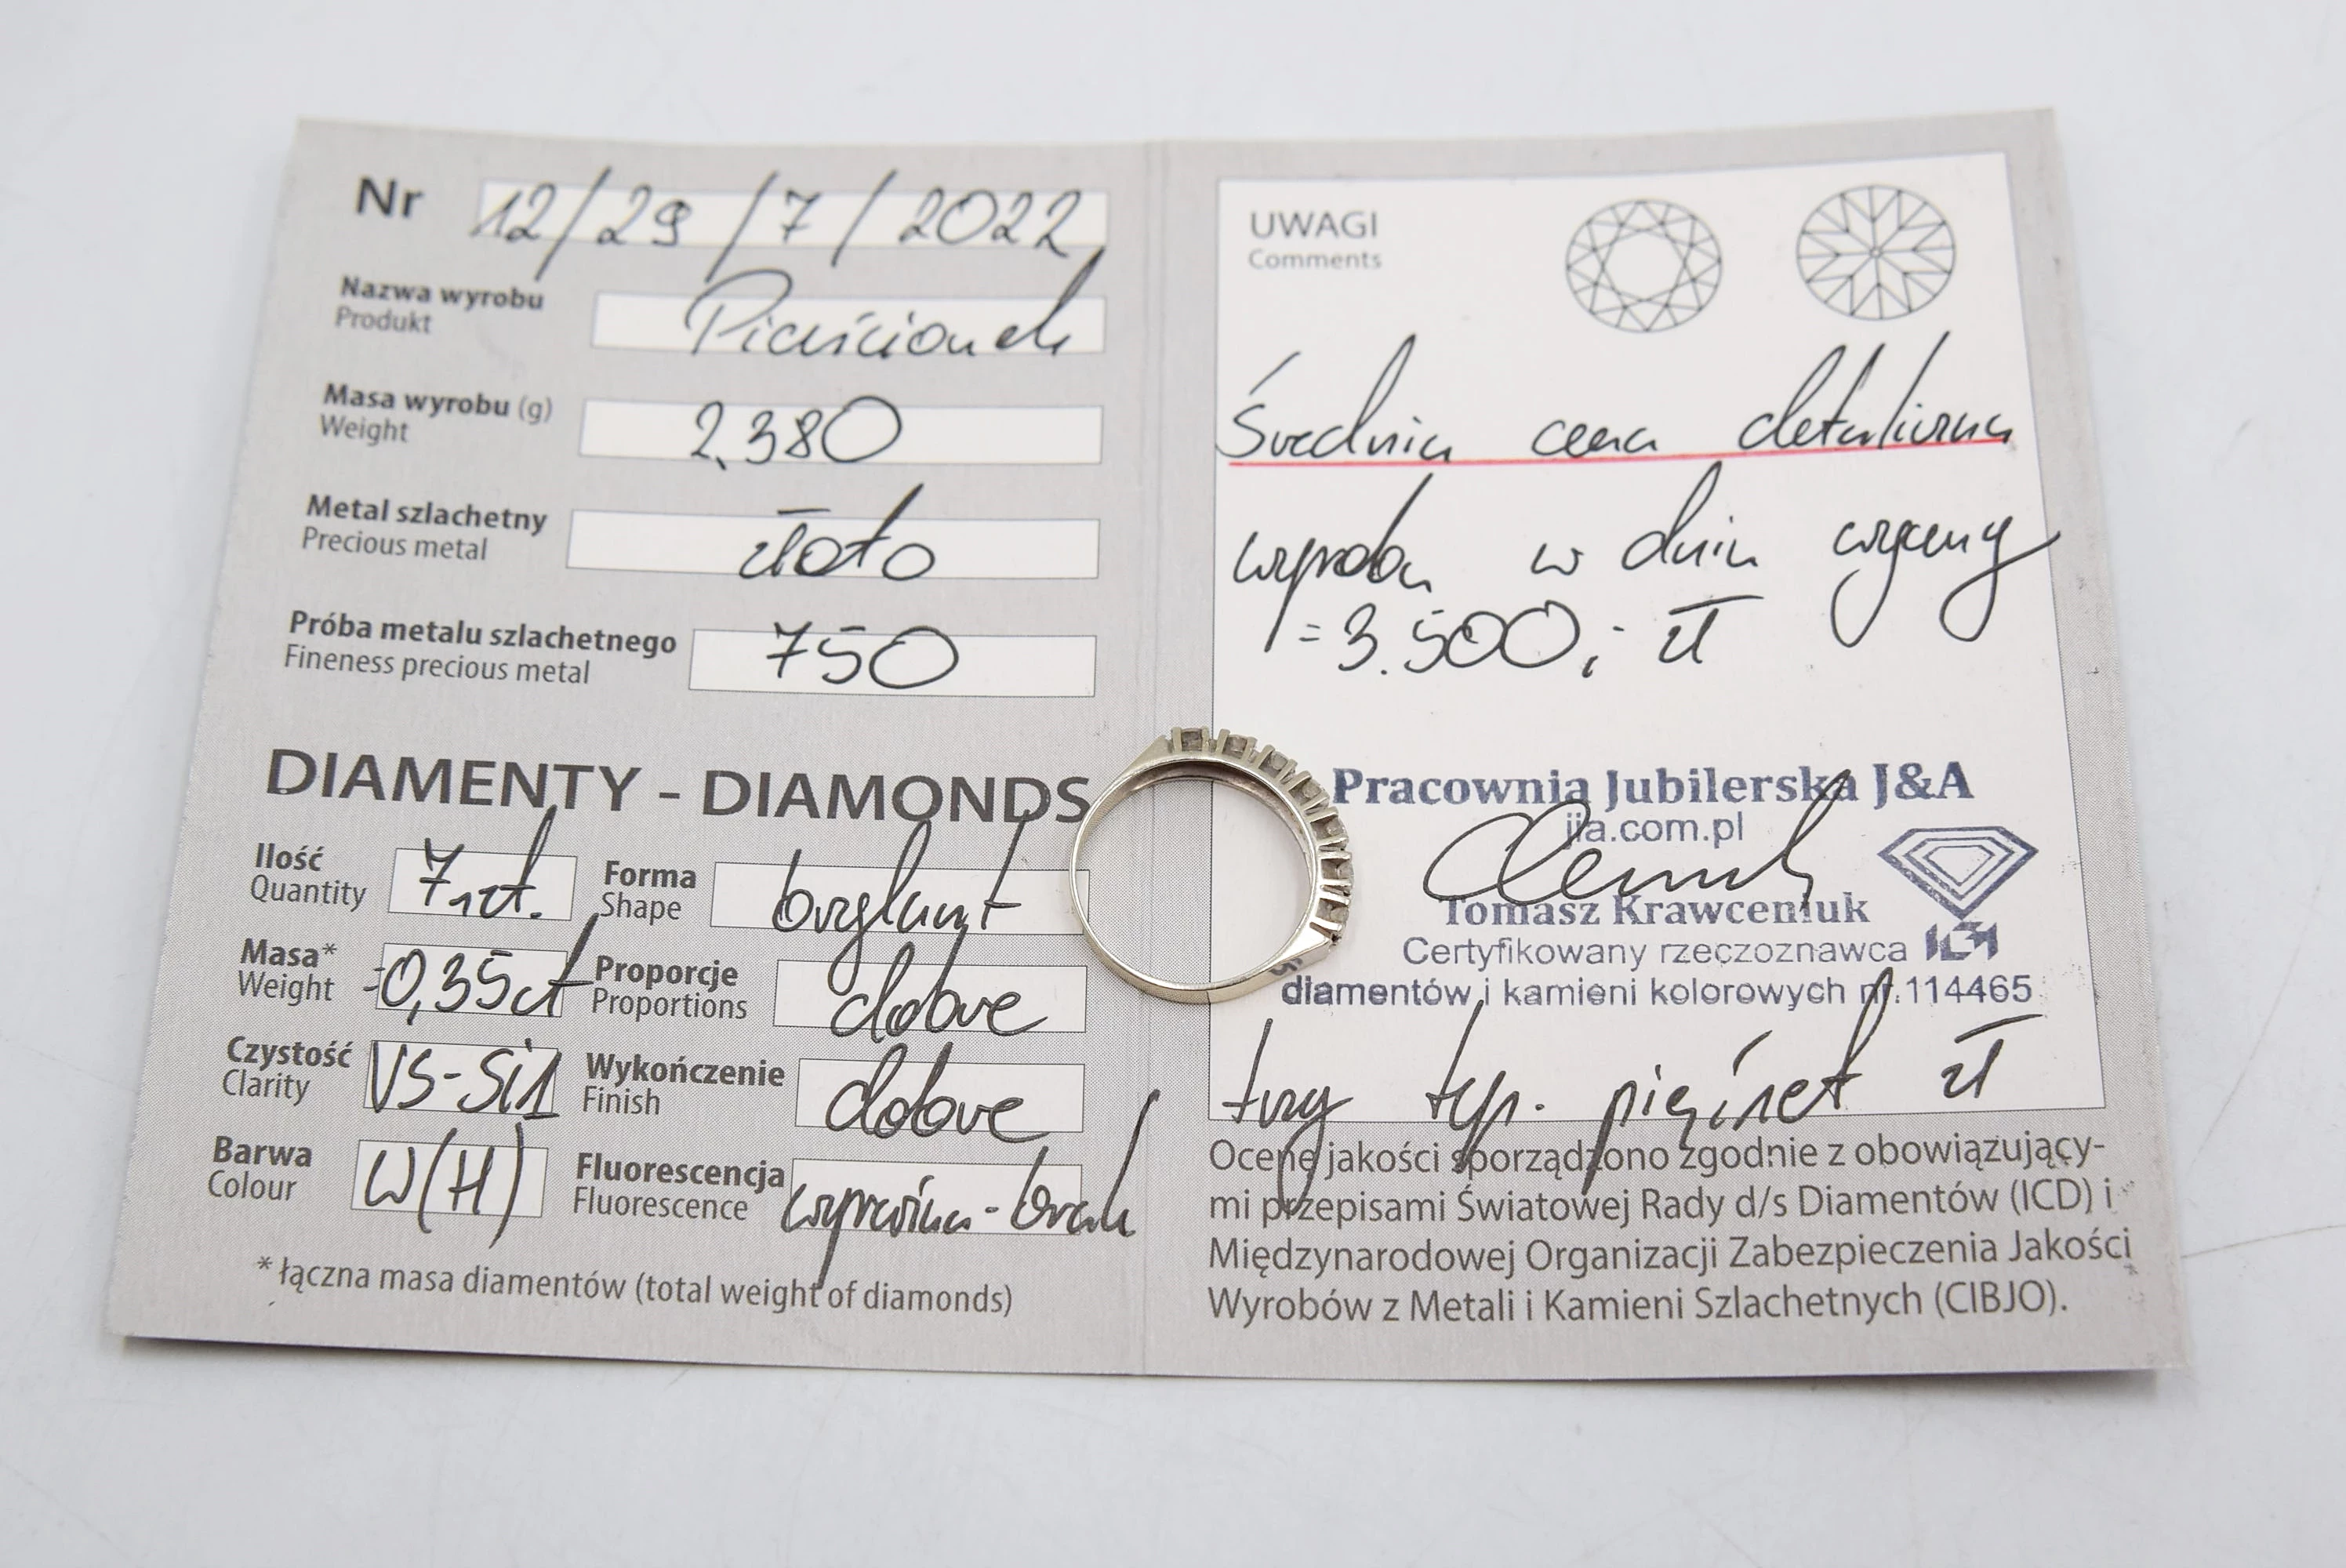 Nr 12/29/7/2022
Nazwa wyrobu Pierścionek
Produkt
Masa wyrobu (g) 2,380
Weight
Metal szlachetny złoto
Precious metal
Próba metalu szlachetnego 750
Fineness precious metal
DIAMENTY - DIAMONDS
Ilość 7 szt. Forma brylant
Quantity Shape
Masa* =0,35ct Proporcje dobre
Weight Proportions
Czystość VS-Si1 Wykończenie dobre
Clarity Finish
Barwa W(H) Fluorescencja - brak
Colour Fluorescence
* łączna masa diamentów (total weight of diamonds)
UWAGI
Comments
Średnia cena detaliczna
wyrobu w dniu wyceny
= 3.500,- zł
Pracownia Jubilerska J&A
jja.com.pl
Tomasz Krawceniuk
Certyfikowany rzeczoznawca
diamentów i kamieni kolorowych nr.114465
trzy tyś. pięćset zł
Ocenę jakości sporządzono zgodnie z obowiązujący-
mi przepisami Światowej Rady d/s Diamentów (ICD) i
Międzynarodowej Organizacji Zabezpieczenia Jakości
Wyrobów z Metali i Kamieni Szlachetnych (CIBJO).